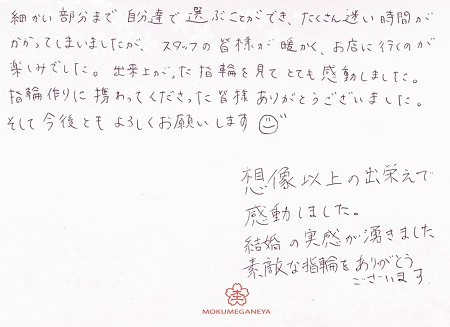 細かい部分まで自分達で選ぶことができ、たくさん迷い時間が
かかってしまいましたが、スタッフの皆様が暖かく、お店に行くのが
楽しみでした。出来上がった指輪を見てとても感動しました。
指輪作りに携わってくださった皆様ありがとうございました。
そして今後ともよろしくお願いします
想像以上の出栄えで
感動しました。
結婚の実感が湧きました
素敵な指輪をありがとう
ございます
MOKUMEGANEYA